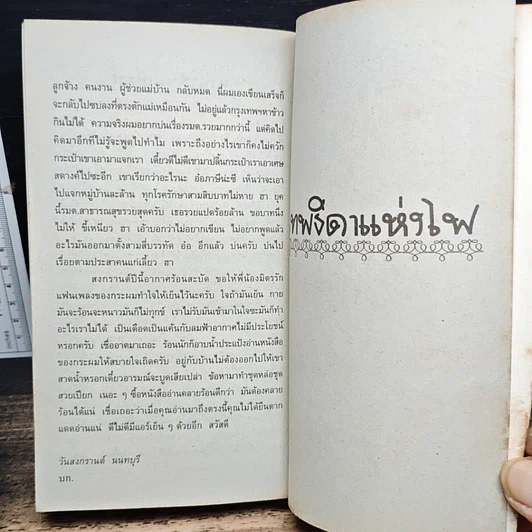 ลูกจ้าง คนงาน ผู้ช่วยแม่บ้าน กลับหมด นี่ผมเองเขียนเสร็จก็
จะกลับไปซบลงที่ตรงตักแม่เหมือนกัน ไม่อยู่แล้วกรุงเทพฯหาข้าว
กินไม่ได้ ความจริงผมอยากบ่นเรื่องรมต.รวยมากกว่านี้ แต่คิดไป
คิดมาอีกทีไม่รู้จะพูดไปทำไม เพราะถึงอย่างไรเขาก็คงไม่ควัก
กระเป๋าเขาเอามาแจกเรา เดี๋ยวดีไม่ดีเขามาปลิ้นกระเป๋าเราเอาเศษ
สตางค์ไปซะอีก เขาเรียกว่าอะไรนะ อ๋อภาษีน่ะซี เห็นว่าจะเอา
ไปแจกหมู่บ้านละล้าน ทุกโรครักษาสามสิบบาทไม่หาย ฮา ยุค
นี้รมต.สาธารณสุขรวยสุดครับ เธอรวยแปดร้อยล้าน ขอบาทนึง
ไม่ให้ ขี้เหนียว เอ้าบอกว่าไม่อยากเขียน ไม่อยากพูดแล้ว
อะไรมันออกมาตั้งสามสี่บรรทัด อ๋อ อีกแล้ว บ่นครับ บ่นไป
เรื่อยตามประสาคนแก่เลี้ยว ฮา
สงกรานต์ปีนี้อากาศร้อนสะบัด ขอให้พี่น้องมิตรรัก
แฟนเพลงของกระผมทำใจให้เย็นไว้นะครับ ใจถ้ามันเย็น กาย
มันจะร้อนจะหนาวมันก็ไม่ทุกข์ เราไม่รับมันเข้ามาในใจซะมันก็ทำ
อะไรเราไม่ได้ เป็นเดือดเป็นแค้นกับลมฟ้าอากาศไม่มีประโยชน์
หรอกครับ เชื่ออาตมาเถอะ ร้อนนักก็อาบน้ำประแป้งอ่านหนังสือ
ของกระผมให้สบายใจเถิดครับ อยู่กับบ้านไม่ต้องออกไปให้เขา
สาดน้ำหรอกเดี๋ยวอารมณ์จะบูดเสียเปล่า ข้อหามาทำชุดหล่อชุด
สวยเปียก เนอะ ๆ ซื้อหนังสืออ่านคลายร้อนดีกว่า มันต้องคลาย
ร้อนได้แน่ เชื่อเถอะว่าเมื่อคุณอ่านมาถึงตรงนี้คุณไม่ได้ยืนตาก
แดดอ่านแน่ ดีไม่ดีมีแอร์เย็น ๆ ด้วยอีก สวัสดี
วันสงกรานต์ นนทบุรี
บก.
เทพธิดาแห่งไพ